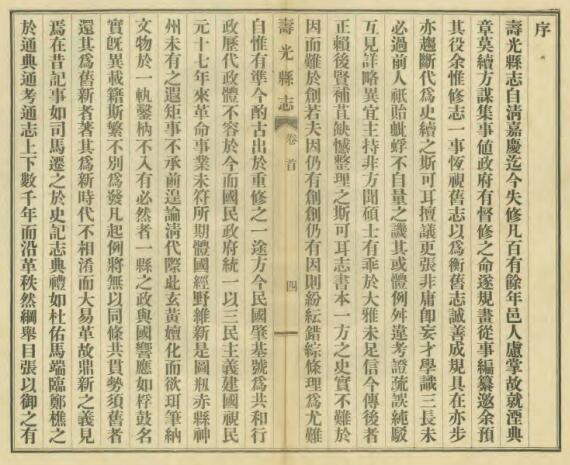 序
壽光縣志自清嘉慶迄今失修凡百有餘年邑人慮掌故就湮典
章莫續方謀集事値政府有督修之命遂規畫從事編纂邀余預
其役余惟修志一事恆視舊志以爲衡舊志誠善成規具在亦步
亦趨斷代爲史續之斯可耳擅議更張非庸卽妄才學識三長未
必過前人祇貽蚍蜉不自量之譏其或體例舛違考證疏誤純駁
互見詳略異宜主持非方聞碩士有乖於大雅未足信今傳後者
正賴後賢補苴缺憾整理之斯可耳志書本一方之史實不難於
因而難於創若夫因仍有創創仍有因則紛紜錯綜條理爲尤難
壽光縣志
卷首
四
自惟有準今酌古出於重修之一途方今民國肇基號爲共和行
政歷代政體不容於今而國民政府統一以三民主義建國視民
元十七年來革命事業未符所期體國經野維新是圖瓶赤縣神
州未有之遐矩事不承前逞論淸代際此玄黃嬗化而欲珥筆納
文物於一軌鑿枘不入有必然者一縣之政與國響應如桴鼓名
實旣異載籍斯繁不別爲發凡起例將無以同條共貫勢須舊者
還其爲舊新者著其爲新時代不相淆而大易革故鼎新之義見
焉在昔記事如司馬遷之於史記志典禮如杜佑馬端臨鄭樵之
於通典通考通志上下數千年而沿革秩然綱舉目張以御之有